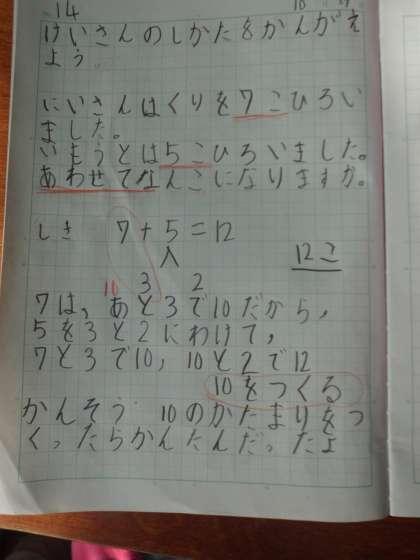 14
けいさんのしかたをかんがえ
よう。
にいさんはくりを7こひろい
ました。
いもうとは5こひろいました。
あわせてなんこになりますか。
しき 7+5=12
12こ
10 3 2
7は、あと3で10だから、
5を3と2にわけて、
7と3で10、10と2で12
10をつくる
かんそう 10のかたまりをつ
くったらかんたんだったよ